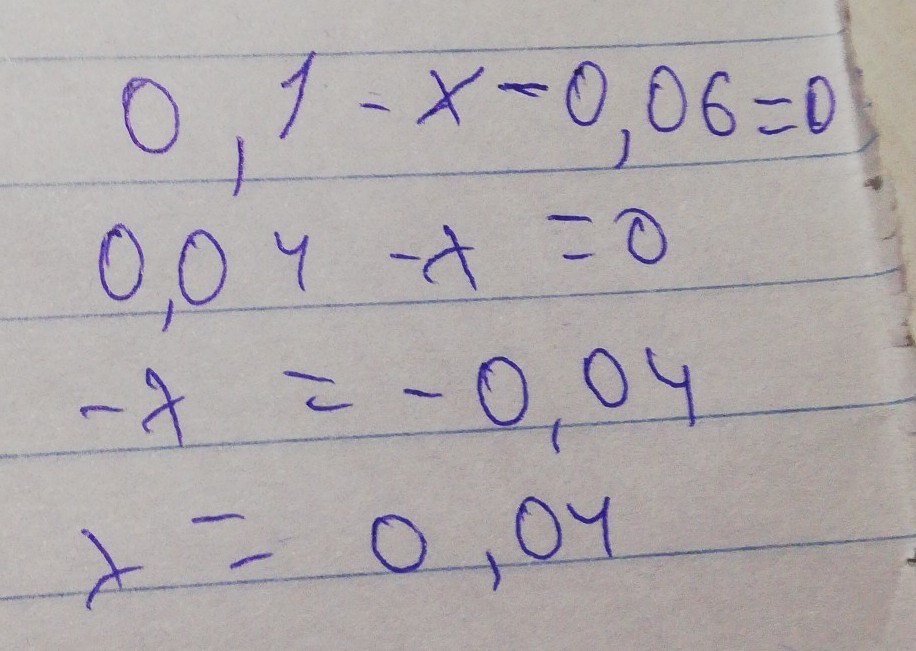 0,1 - x - 0,06 = 0
0,04 - x = 0
-x = -0,04
x = 0,04